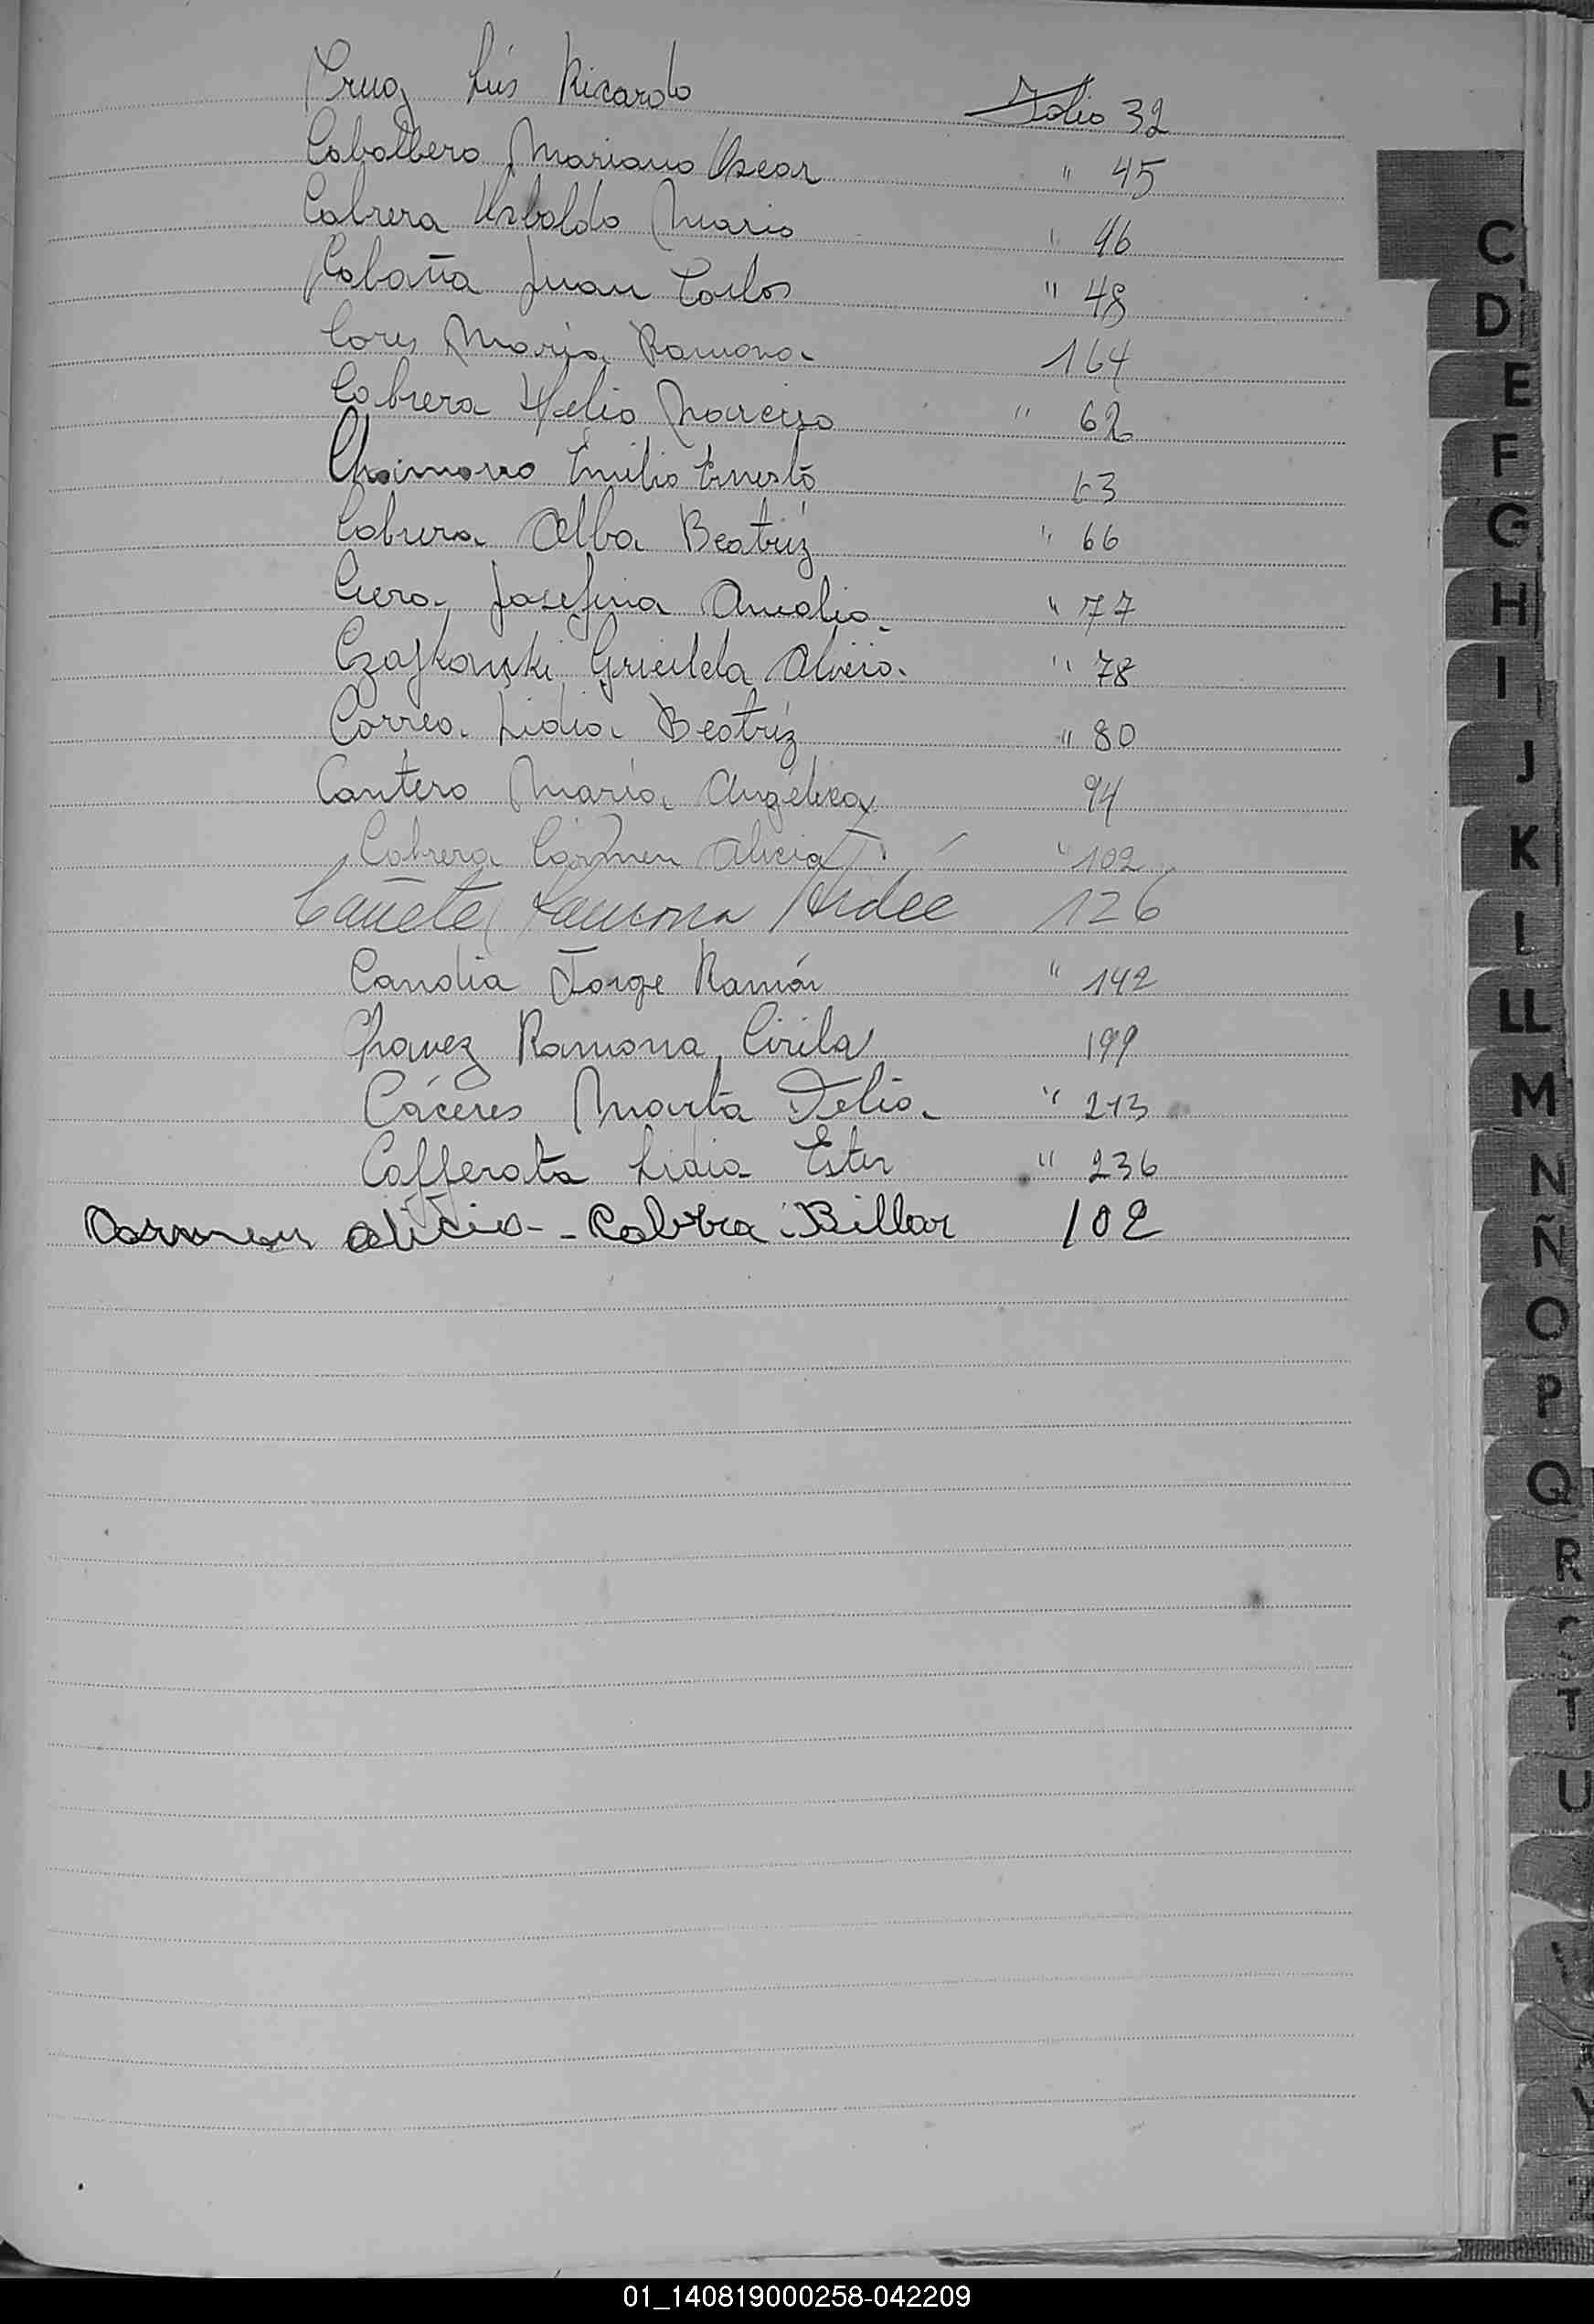 Cruz Luis Ricardo Folio 32
Caballero Mariano Oscar " 45
Cabrera Ubaldo Mario " 46
Cabaña Juan Carlos " 48
Cores María Ramona 164
Cabrera Helio Narciso " 62
Chaimorro Emilio Ernesto 63
Cabrera Alba Beatríz " 66
Cuero Josefina Amalia " 77
Czajkowski Gricelda " 78
Correa Lidia Beatríz " 80
Cantero María Angélica 94
Cabrera Carmen Alicia " 102
Cañete Ramona Aidée 126
Candia Jorge Ramón " 142
Chavez Ramona Cirila 199
Cáceres Marta Delia " 213
Cafferata Lidia Ester " 236
Carmen Alicia - Cabrera Billar 102
C
D
E
F
G
H
I
J
K
L
LL
M
N
Ñ
O
P
Q
R
T
U
01_140819000258-042209